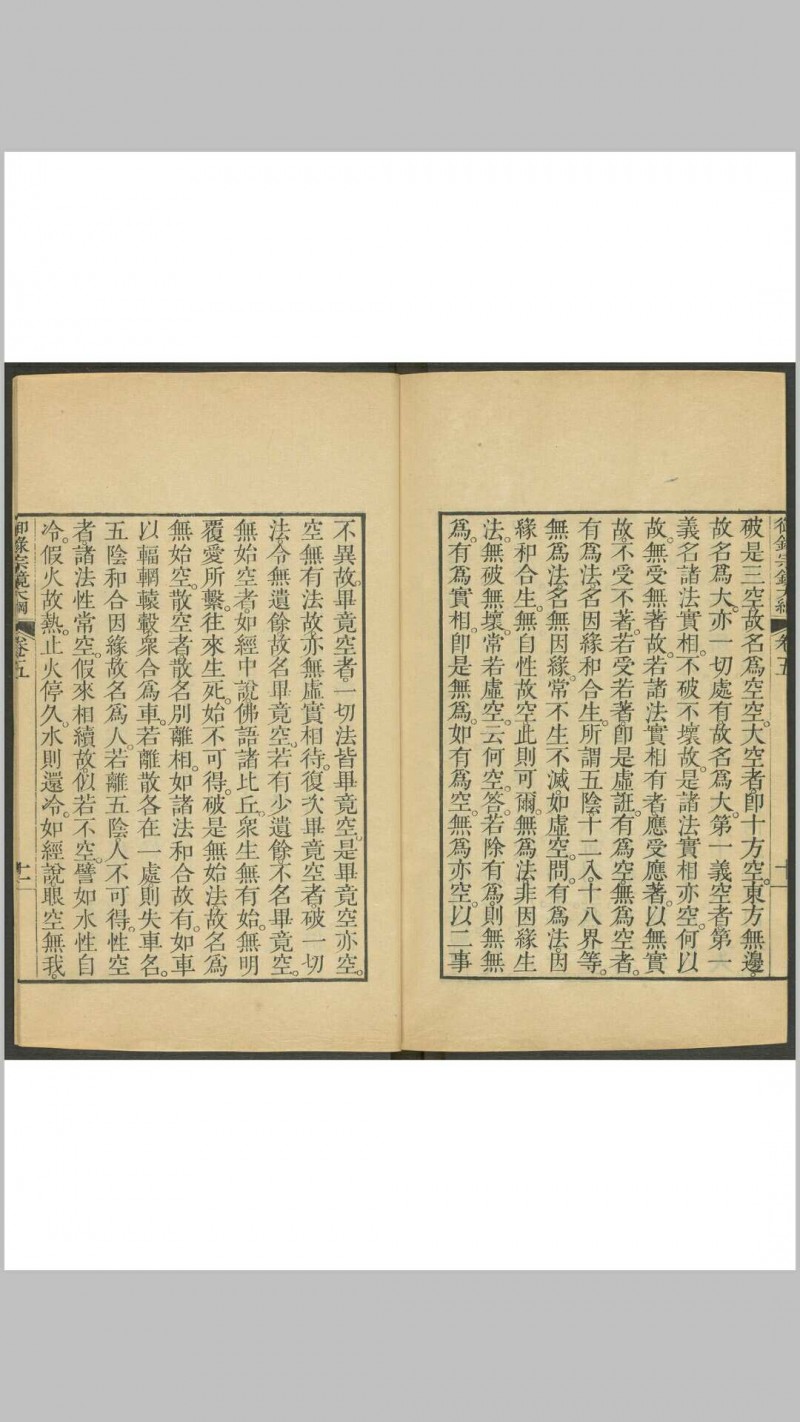 卷五
十
破是三空。故名爲空空。大空者。即十方空。東方無邊。
故名爲大。亦一切處有。故名爲大。第一義空者。第一
義名諸法實相。不破不壞故。是諸法實相亦空。何以
故。無受無著故。若諸法實相有者。應受應著。以無實
故。不受不著。若受若著。即是虛誑。有爲空無爲空者。
有爲法名因緣和合生。所謂五陰十二入十八界等。
無爲法名無因緣。常不生不滅。如虛空。問。有爲法因
緣和合生。無自性故空。此則可爾。無爲法非因緣生
法。無破無壞。常若虛空。云何空。答。若除有爲。則無無
爲。有爲實相。即是無爲。如有爲空。無爲亦空。以二事
不異故。畢竟空者。一切法皆畢竟空。是畢竟空亦空。
空無有法故。亦無虛實相待。復次畢竟空者。破一切
法令無遺餘。故名畢竟空。若有少遺餘。不名畢竟空。
無始空者。如經中說。佛語諸比丘。衆生無有始。無明
覆愛所繫。往來生死。始不可得。破是無始法。故名爲
無始空。散空者。散名別離相。如諸法和合故有。如車
以輻輞轅轂衆合爲車。若離散各在一處。則失車名。
五陰和合因緣。故名爲人。若離五陰。人不可得。性空
者。諸法性常空。假來相續。故似若不空。譬如水性自
冷。假火故熱。止火停久。水則還冷。如經說。眼空無我。
御錄宗鏡大綱
卷五
十一